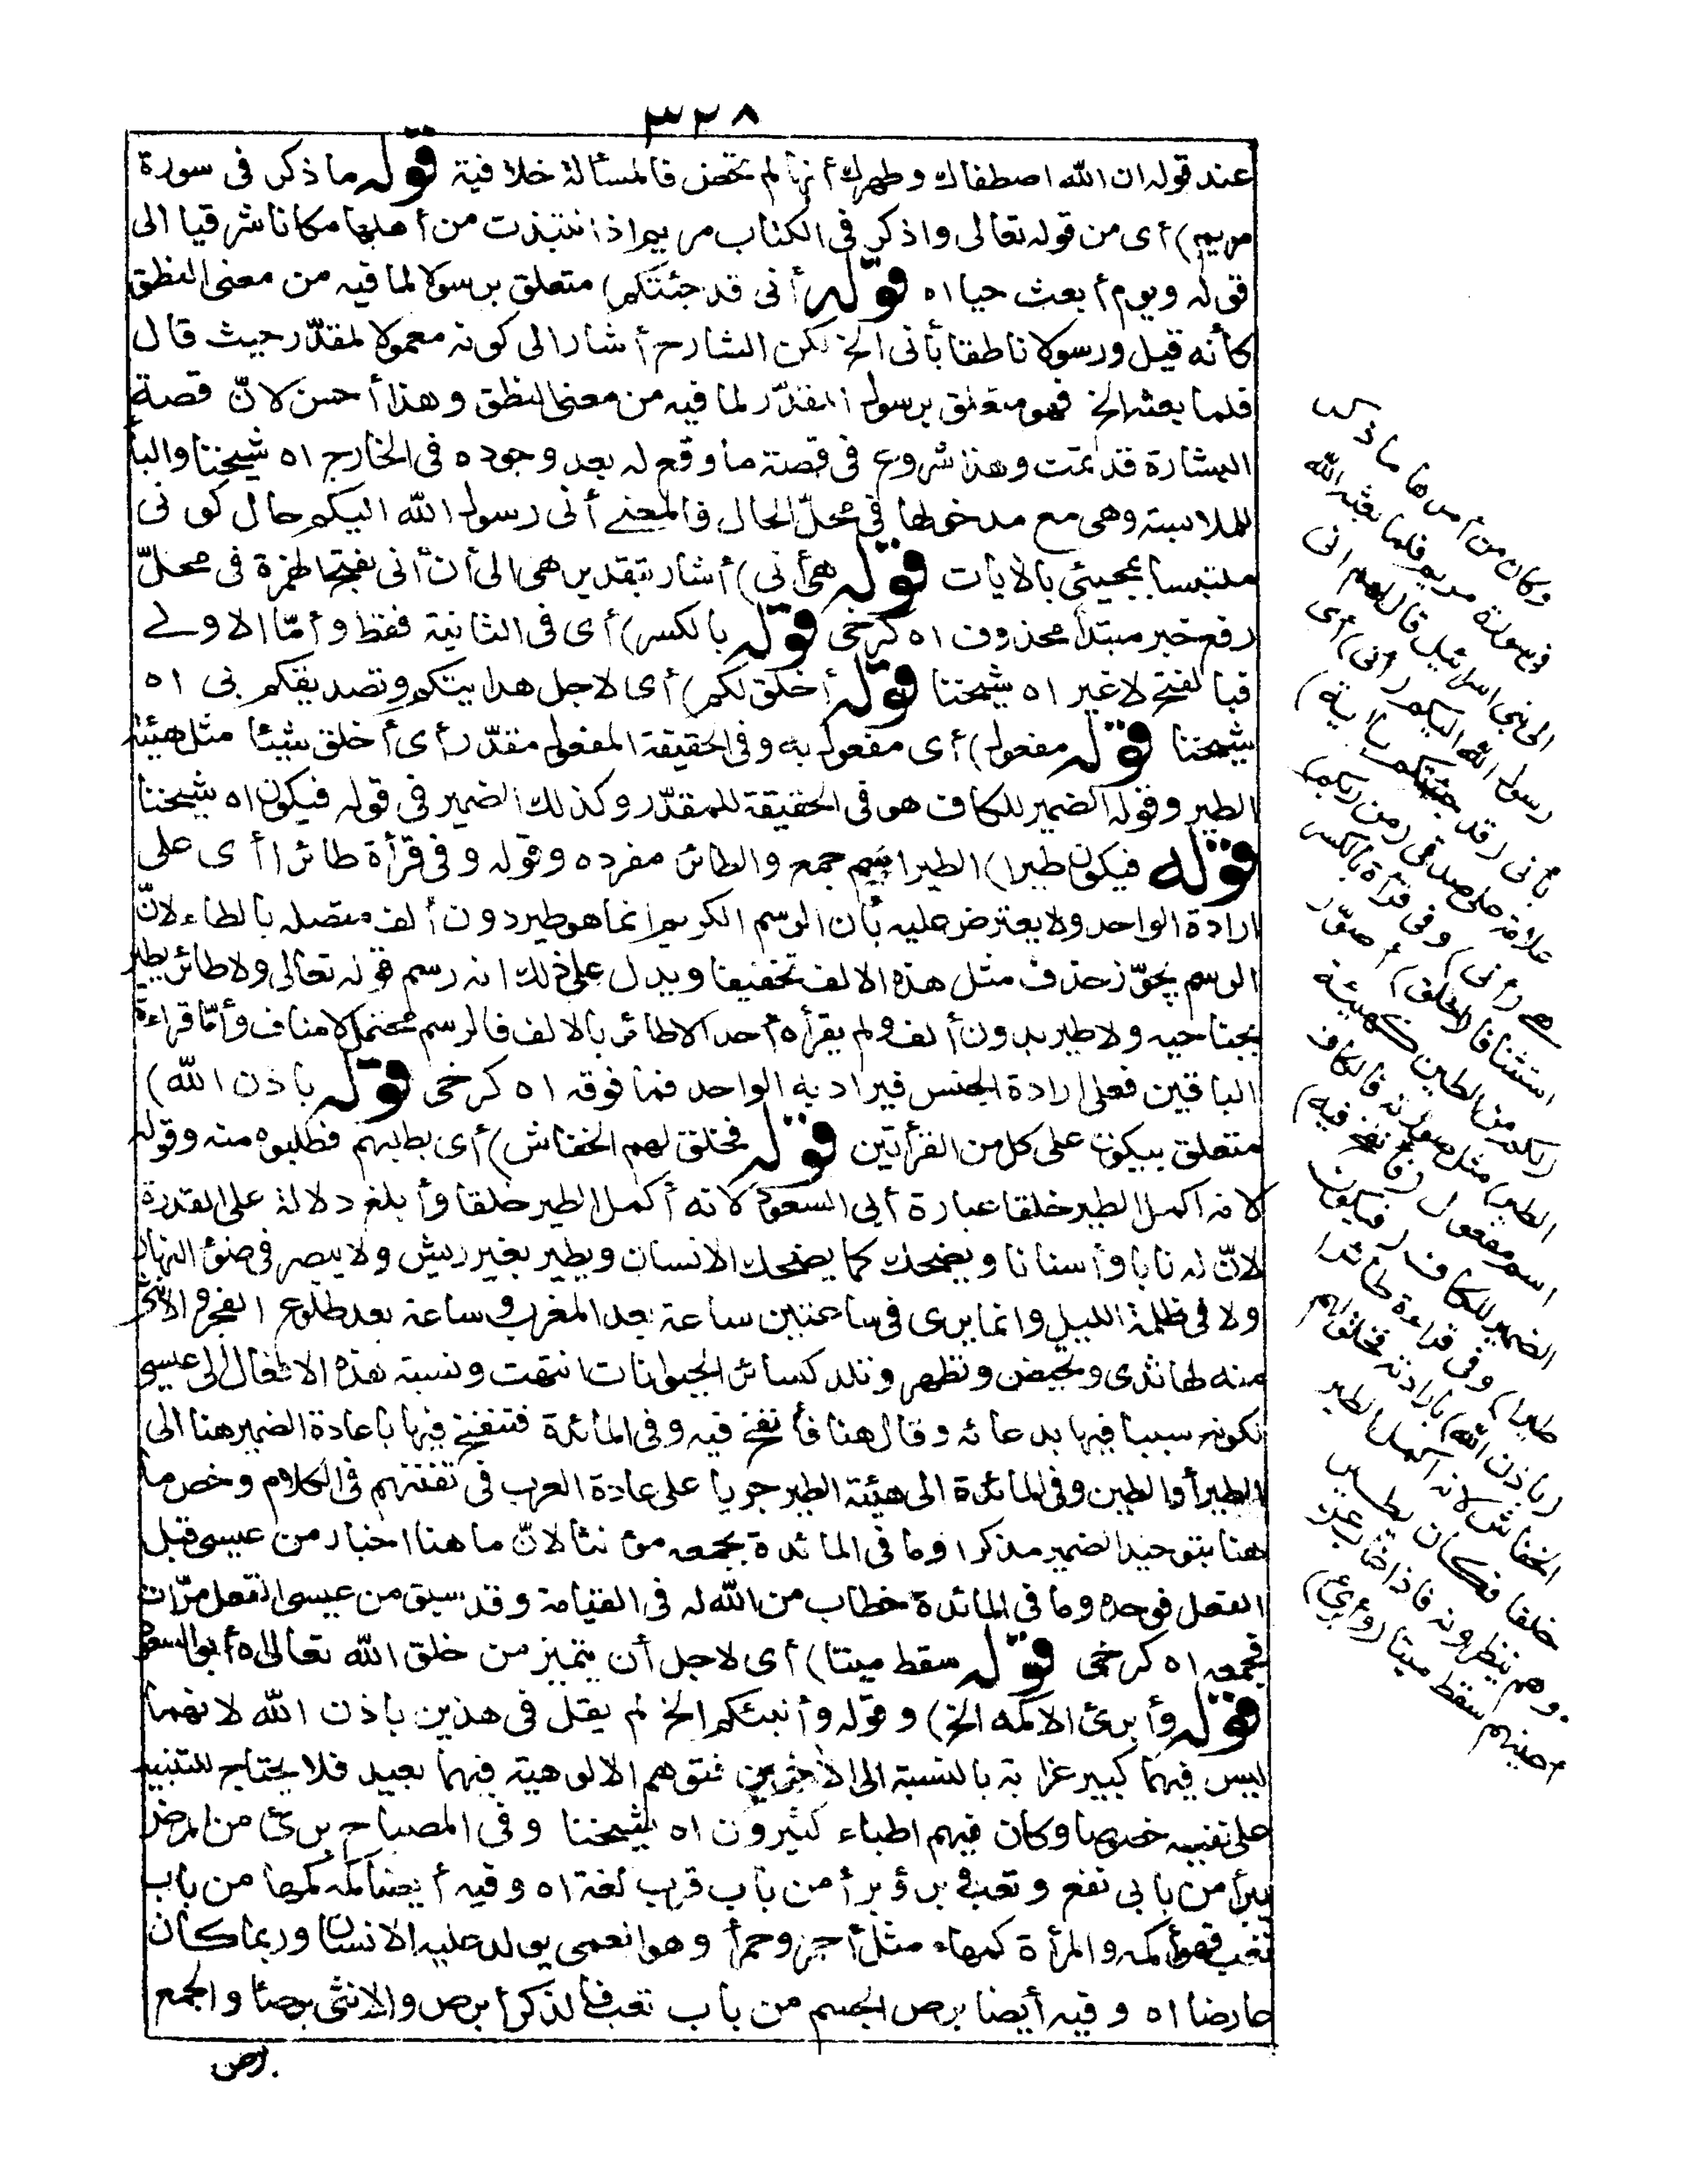 ٣٢٨
عند قوله ان الله اصطفاك وطهرك أنها لم تحض فالمسألة خلافية قوله ما ذكر فى سورة
مريم) أى من قوله تعالى واذكر فى الكتاب مريم اذ انتبذت من أهلها مكانا شرقيا الى
قوله ويوم أبعث حيا اه قوله أنى قد جئتكم) متعلق برسولا لما فيه من معنى النطق
كأنه قيل ورسولا ناطقا بأنى الخ لكن الشارح أشار الى كونه معمولا لمقدّر حيث قال
فلما بعثه الخ فهو متعلق برسول المقدّر لما فيه من معنى النطق وهذا أحسن لانّ قصة
البشارة قد تمت وهذا شروع فى قصة ما وقع له بعد وجوده فى الخارج اه شيخنا والباء
للملابسة وهى مع مدخولها فى محلّ الحال فالمعنى أنى رسول الله اليكم حال كونى
ملتبسا بمجيئى بالآيات قوله هى أنى) أشار بتقدير هى الى أن أنى بفتح الهمزة فى محلّ
رفع خبر مبتدأ محذوف اه كرخى قوله بالكسر) أى فى الثانية فقط وأمّا الاولى
فبالفتح لاغير اه شيخنا قوله أخلق لكم) أى لاجل هدايتكم وتصديقكم بى اه
شيخنا قوله مفعول) أى مفعول به وفى الحقيقة المفعول مقدّر أى أخلق شيئا مثل هيئة
الطير وقوله الضمير للكاف هو فى الحقيقة للمقدّر وكذلك الضمير فى قوله فيكون اه شيخنا
قوله فيكون طيرا) الطير اسم جمع والطائر مفرده وقوله وفى قرأة طائرا أى على
ارادة الواحد ولا يعترض عليه بأن الرسم الكريم انما هو طير دون ألف متصله بالطاء لانّ
الرسم يجوّز حذف مثل هذه الالف تخفيفا ويدل على ذلك انه رسم قوله تعالى ولا طائر يطير
بجناحيه ولا طير بدون ألف ولم يقرأه أحد الا طائر بالالف فالرسم محتمل لا مناف وأمّا قراءة
الباقين فعلى ارادة الجنس فيراد به الواحد فما فوقه اه كرخى قوله باذن الله)
متعلق بيكون على كل من القرأتين قوله فخلق لهم الخفاش) أى بطلبهم فطلبوه منه وقوله
لانه اكمل الطير خلقا عبارة أبى السعود لانه أكمل الطير خلقا وأبلغ دلالة على القدرة
لانّ له نابا وأسنانا ويضحك كما يضحك الانسان ويطير بغير ريش ولا يبصر فى ضوء النهار
ولا فى ظلمة الليل وانما يرى فى ساعتين ساعة بعد المغرب وساعة بعد طلوع الفجر والانثى
منه لها ثدى وتحيض وتطهر وتلد كسائر الحيوانات انتهت ونسبة هذه الافعال الى عيسى
لكونه سببا فيها بدعائه وقال هنا فأنفخ فيه وفى المائدة فتنفخ فيها باعادة الضمير هنا الى
الطير أو الطين وفى المائدة الى هيئة الطير جريا على عادة العرب فى تفننهم فى الكلام وخص ما
هنا بتوحيد الضمير مذكرا وما فى المائدة بجمعه مؤنثا لانّ ما هنا اخبار من عيسى قبل
الفعل فوحده وما فى المائدة خطاب من الله له فى القيامة وقد سبق من عيسى الفعل مرّات
فجمعه اه كرخى قوله سقط ميتا) أى لاجل أن يتميز من خلق الله تعالى اه أبو السعود
قوله وأبرئ الاكمه الخ) وقوله وأنبئكم الخ لم يقل فى هذين باذن الله لانهما
ليس فيهما كبير غرابة بالنسبة الى الآخرين فتوهم الالوهية فيهما بعيد فلا يحتاج للتنبيه
على نفيه خصوصا وكان فيهم اطباء كثيرون اه شيخنا وفى المصباح برئ من المرض
يبرأ من بابى نفع وتعب وبرؤ برأ من باب قرب لغة اه وفيه أيضا كمه كمها من باب
تعب فهو أكمه والمرأة كمهاء مثل أحمر وحمرا وهو العمى يولد عليه الانسان وربما كان
عارضا اه وفيه أيضا برص الجسم من باب تعب فالذكر أبرص والانثى برصا والجمع
برص
وكان من أمرها ما ذكر
فى سورة مريم فلما بعثه الله
الى بنى اسرائيل قال لهم انى
رسول الله اليكم (أنى) أى
بأنى (قد جئتكم بآية)
علامة على صدقى (من ربكم)
هى (أنى) وفى قرأة بالكسر
استئنافا (أخلق) أصوّر
(لكم من الطين كهيئة
الطير) مثل صورته فالكاف
اسم مفعول (فأنفخ فيه)
الضمير للكاف (فيكون
طيرا) وفى قراءة طائرا
(باذن الله) بارادته فخلق لهم
الخفاش لانه اكمل الطير
خلقا فكان يطير
وهم ينظرونه فاذا غاب عن
أعينهم سقط ميتا (وأبرئ)